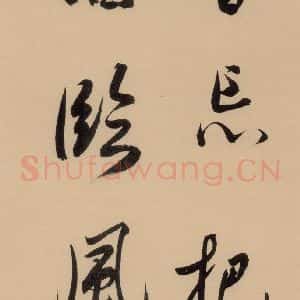 忘把
臨風
Shufawang.CN